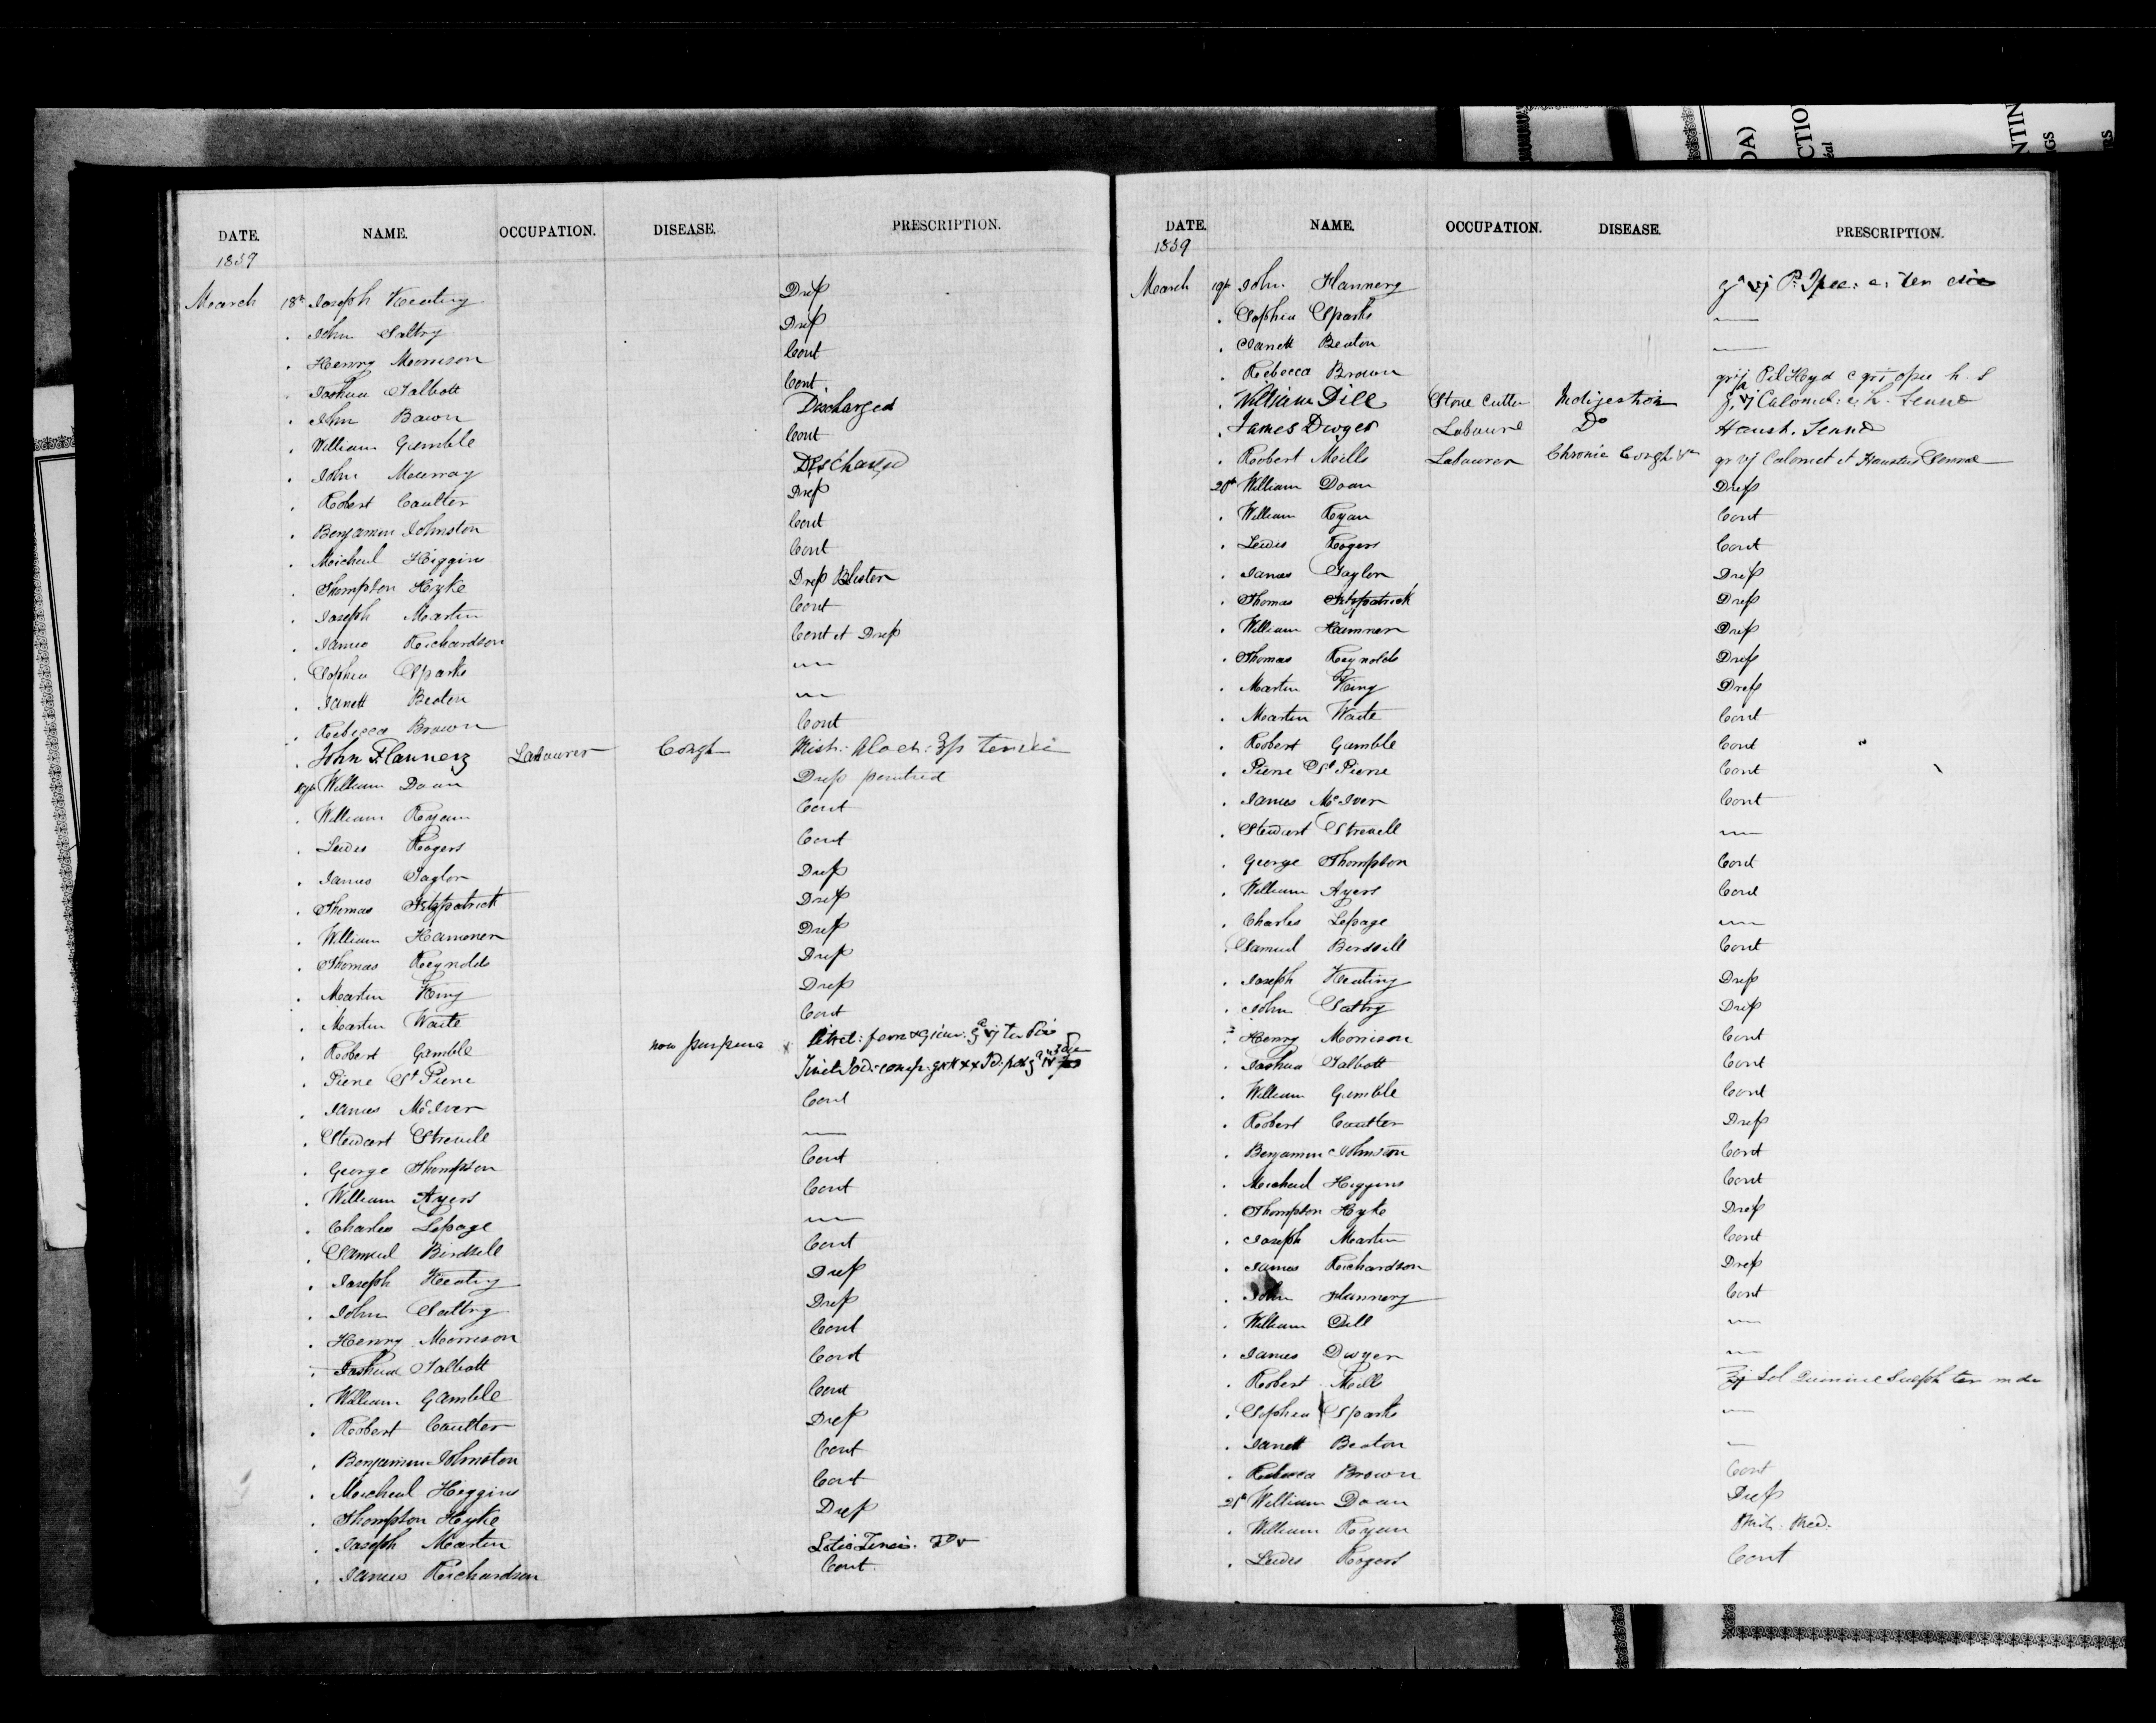 DATE. NAME. OCCUPATION. DISEASE. PRESCRIPTION.
1859
March 18th Joseph Keating Dress
. John Saltry Dress
. Henry Morrison Cont
. Joshua Talbott Cont.
. John Bawn Discharged
. William Gamble Cont
. John Murray Discharged
. Robert Coulter Dress
. Benjamin Johnston Cont
. Micheal Higgins Cont
. Thompson Hyke Dress Blister
. Joseph Martin Cont
. James Richardson Cont et Dress
. Sophia Sparks —
. Janett Beaton —
. Rebecca Brown Cont
. John Flannery Labourer Cough Mist:
19th William Doan Dress
. William Ryan Cont
. Lewis Rogers Cont
. James Taylor Dress
. Thomas Fitzpatrick Dress
. William Hammer Dress
. Thomas Reynolds Dress
. Martin King Dress
. Martin Waite Cont
. Robert Gamble now purpura
. Pierre St Pierre
. James McIver Cont
. Stewart Strevell —
. George Thompson Cont
. William Ayers Cont
. Charles Lepage —
. Samuel Birdsell Cont
. Joseph Keating Dress
. John Saltry Dress
. Henry Morrison Cont
. Joshua Talbott Cont
. William Gamble Cont
. Robert Coulter Dress
. Benjamin Johnston Cont
. Micheal Higgins Cont
. Thompson Hyke Dress
. Joseph Martin Lotio
. James Richardson Cont.
DATE. NAME. OCCUPATION. DISEASE. PRESCRIPTION.
1859
March 19th John Flannery
. Sophia Sparks —
. Janett Beaton —
. Rebecca Brown Pil Hyd c gr i opii h. s
. William Dill Stone Cutter Indigestion Calomel: Senna
. James Dwyer Labourer Do Haust. Senna
. Robert Mills Labourer Chronic Cough gr vj Calomel et Haustus Sennae
20th William Doan Dress
. William Ryan Cont
. Lewis Rogers Cont
. James Taylor Dress
. Thomas Fitzpatrick Dress
. William Hammer Dress
. Thomas Reynolds Dress
. Martin King Dress
. Martin Waite Cont
. Robert Gamble Cont
. Pierre St Pierre Cont
. James McIver Cont
. Stewart Strevell —
. George Thompson Cont
. William Ayers Cont
. Charles Lepage —
. Samuel Birdsell Cont
. Joseph Keating Dress
. John Saltry Dress
. Henry Morrison Cont
. Joshua Talbott Cont
. William Gamble Cont
. Robert Coulter Dress
. Benjamin Johnston Cont
. Micheal Higgins Cont
. Thompson Hyke Dress
. Joseph Martin Cont
. James Richardson Dress
. John Flannery Cont
. William Dill —
. James Dwyer —
. Robert Mills Sol Quinine Sulph ter in die
. Sophia Sparks —
. Janett Beaton —
. Rebecca Brown Cont
21st William Doan Dress
. William Ryan
. Lewis Rogers Cont